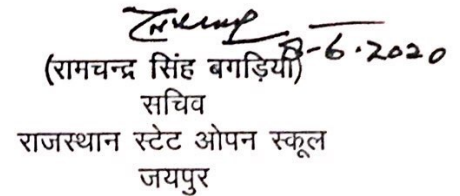 8-6.2020
(रामचन्द्र सिंह बगड़िया)
सचिव
राजस्थान स्टेट ओपन स्कूल
जयपुर